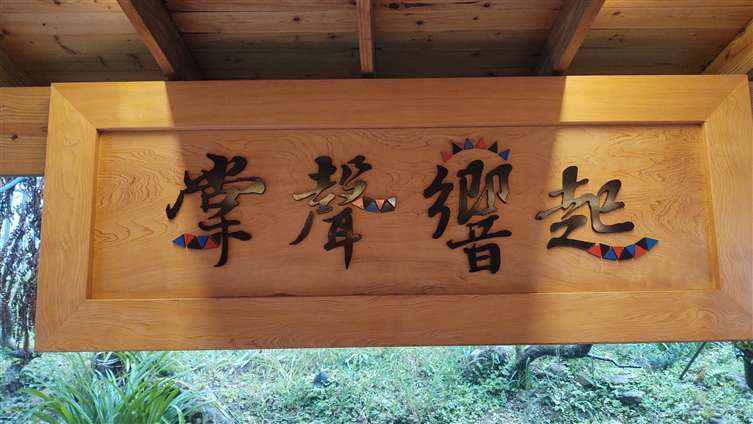 掌聲響起